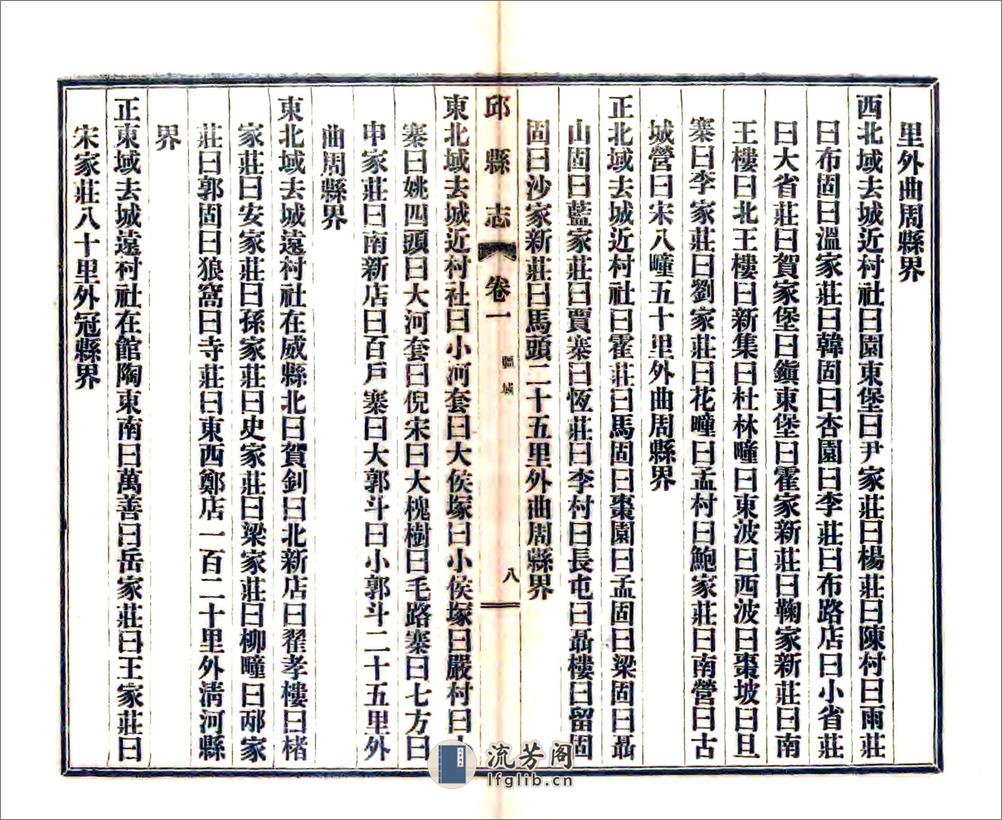 里外曲周縣界
西北域去城近村社曰園東堡曰尹家莊曰楊莊曰陳村曰雨莊
曰布固曰溫家莊曰韓固曰杏園曰李莊曰布路店曰小省莊
曰大省莊曰賀家堡曰鎭東堡曰霍家新莊曰鞠家新莊曰南
王樓曰北王樓曰新集曰杜林疃曰東波曰西波曰棗坡曰旦
寨曰李家莊曰劉家莊曰花疃曰孟村曰鮑家莊曰南營曰古
城營曰宋八疃五十里外曲周縣界
正北域去城近村社曰霍莊曰馬固曰棗園曰孟固曰梁固曰聶
山固曰藍家莊曰賈寨曰恆莊曰李村曰長屯曰聶樓曰留固
固曰沙家新莊曰馬頭二十五里外曲周縣界
邱縣志 卷一 疆域 八
東北域去城近村社曰小河套曰大侯塚曰小侯塚曰嚴村曰
寨曰姚四頭曰大河套曰倪宋曰大槐樹曰毛路寨曰七方曰
申家莊曰南新店曰百戶寨曰大郭斗曰小郭斗二十五里外
曲周縣界
東北域去城遠村社在威縣北曰賀釗曰北新店曰翟孝樓曰楮
家莊曰安家莊曰孫家莊曰史家莊曰梁家莊曰柳疃曰邴家
莊曰郭固曰狼窩曰寺莊曰東西鄭店一百二十里外淸河縣
界
正東域去城遠村社在館陶東南曰萬善曰岳家莊曰王家莊曰
宋家莊八十里外冠縣界
流芳阁
lfglib.cn